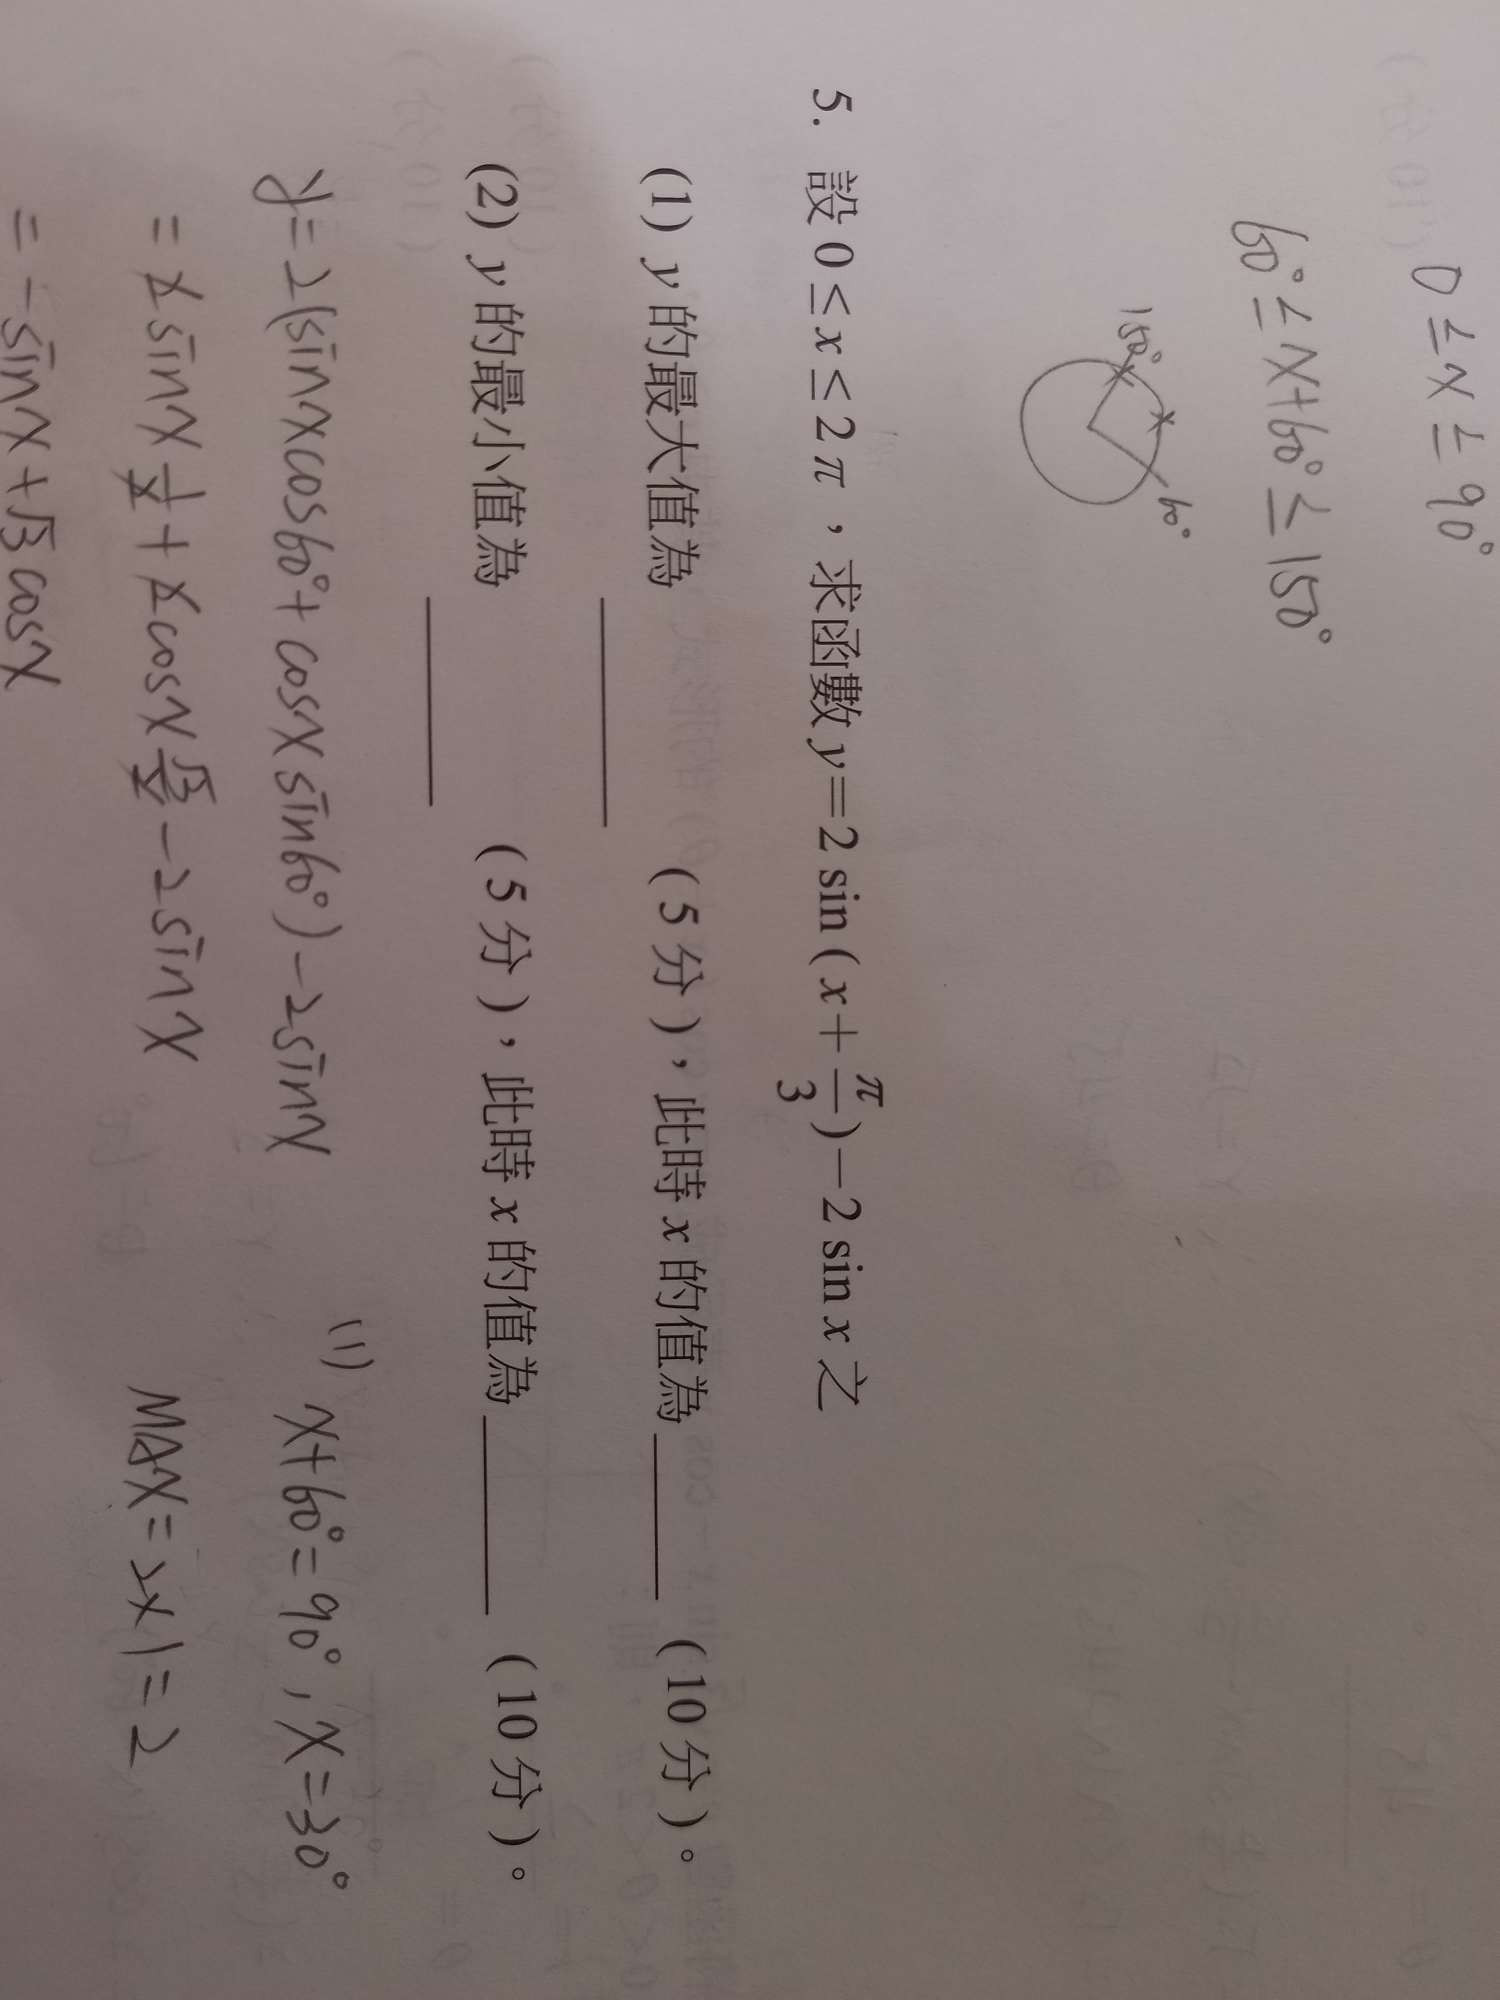 0 ≤ x ≤ 90°
60° ≤ x+60° ≤ 150°
150°
60°
5. 設 0 ≤ x ≤ 2π，求函數 y = 2 sin (x + π/3) − 2 sin x 之
(1) y 的最大值為 ______ (5 分)，此時 x 的值為 ______ (10 分)。
(2) y 的最小值為 ______ (5 分)，此時 x 的值為 ______ (10 分)。
y = 2(sinx cos60° + cosx sin60°) − 2sinx
= 2 sinx 1/2 + 2 cosx √3/2 − 2 sinx
= − sinx + √3 cosx
(1) x+60° = 90°, x = 30°
MAX = 2×1 = 2